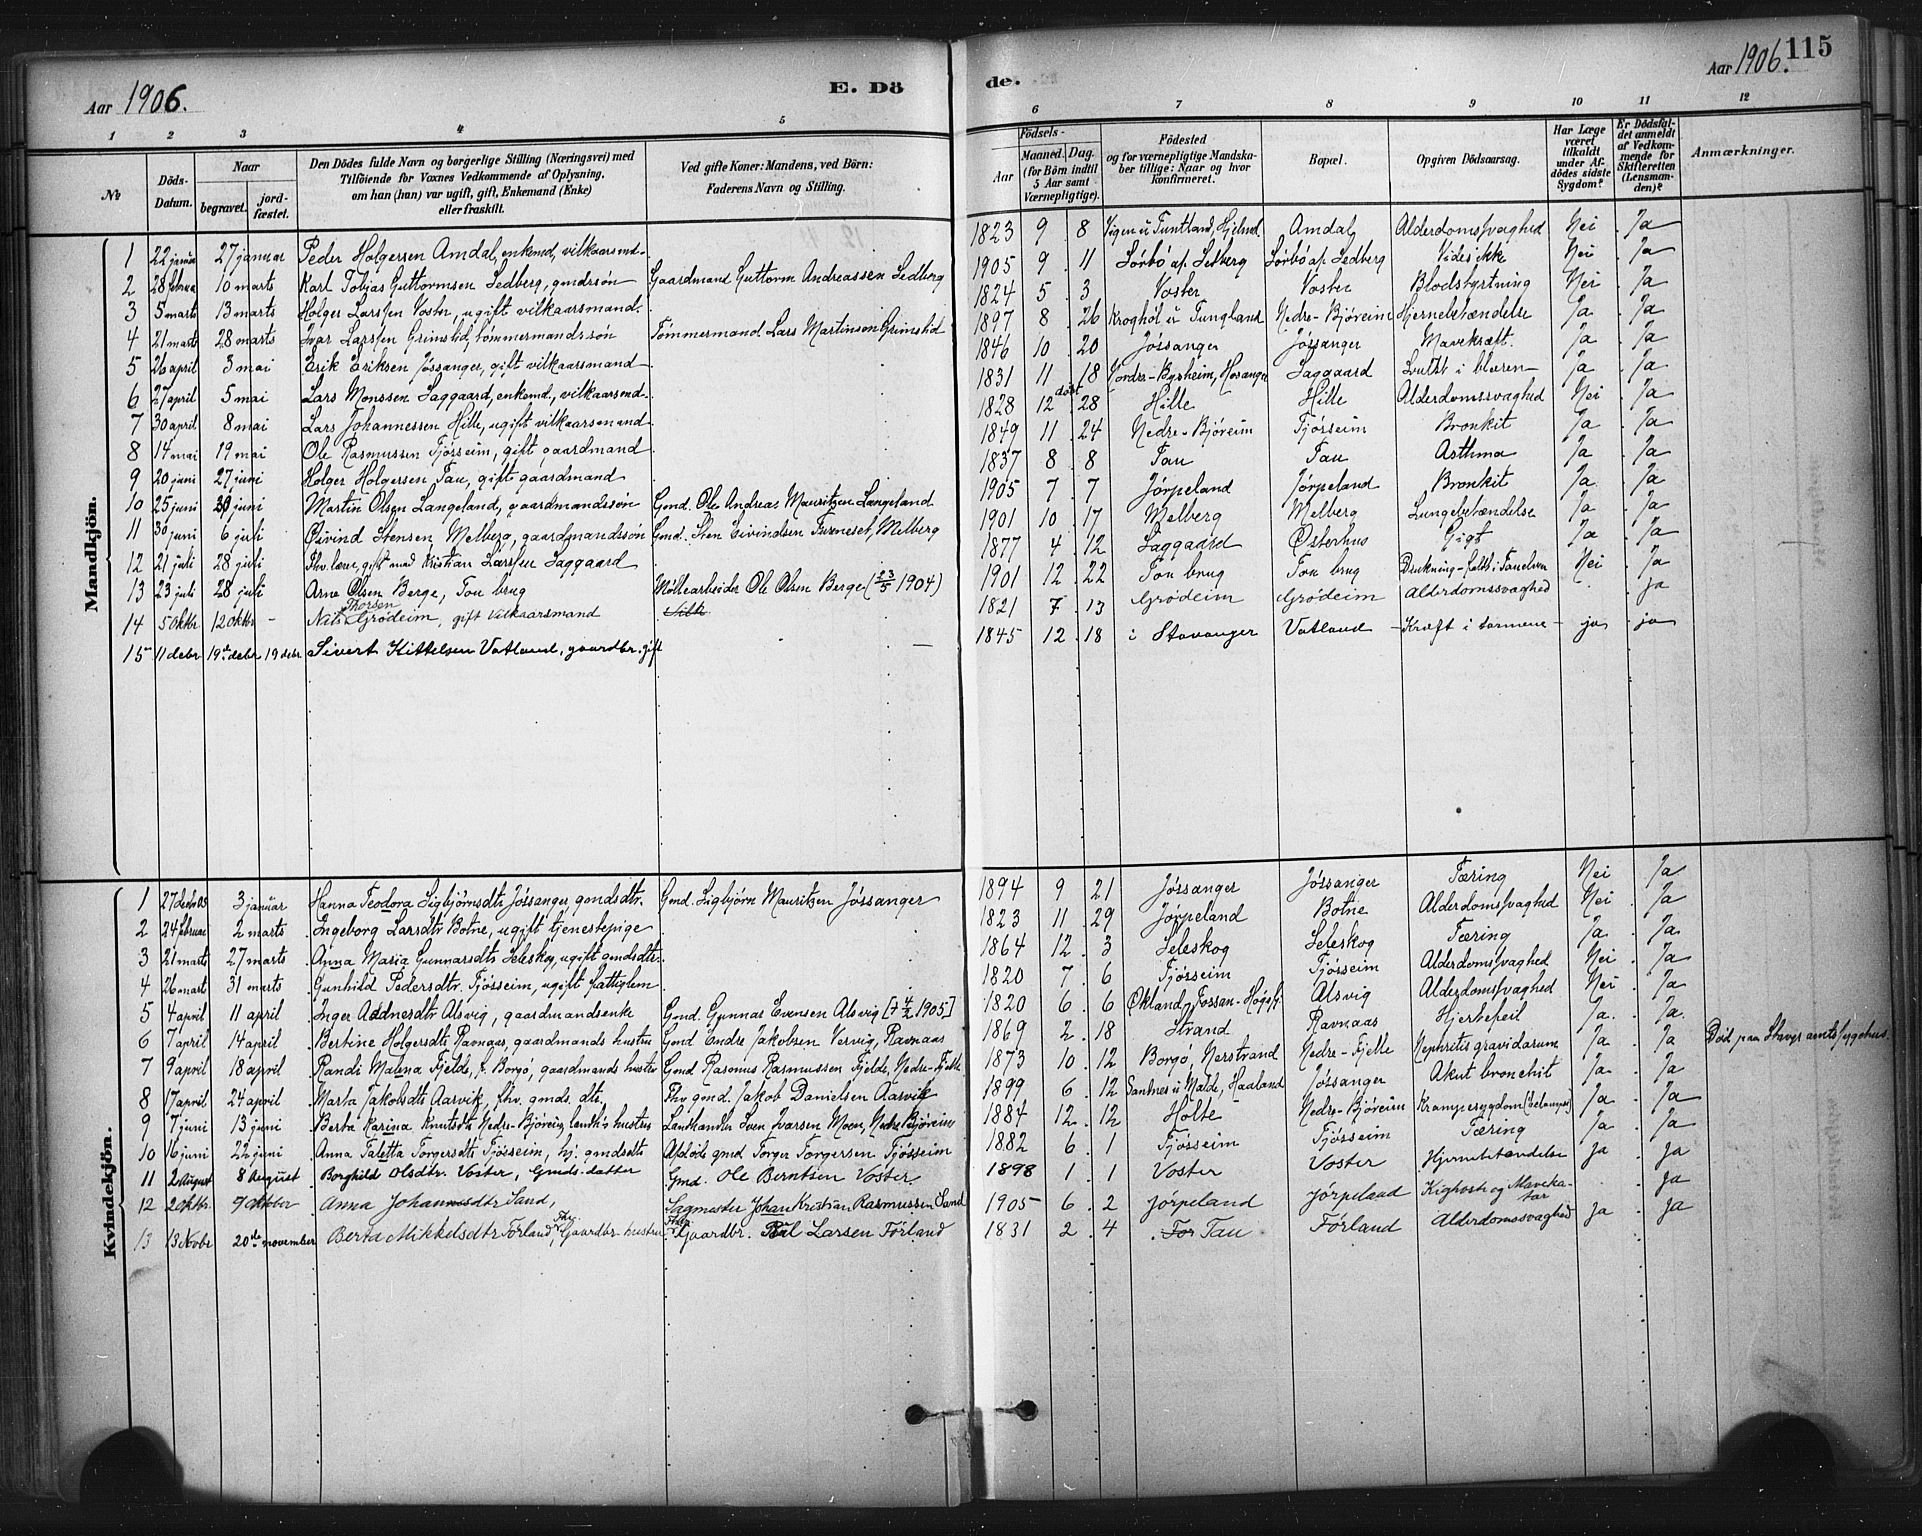 Aar 1906.
E. Dö
de.
Aar 1906.
115
1 2 3 4 5 6 7 8 9 10 11 12
No
Döds-Datum.
Naar
begravet.
jordfæstet.
Den Dödes fulde Navn og borgerlige Stilling (Næringsvei) med
Tilföiende for Voxnes Vedkommende af Oplysning,
om han (hun) var ugift, gift, Enkemand (Enke)
eller fraskilt.
Ved gifte Koner: Mandens, ved Börn:
Faderens Navn og Stilling.
Födsels-
Aar
Maaned. Dag.
(for Börn indtil
5 Aar samt
Værnepligtige).
Födested
og for værnepligtige Mandskaber tillige: Naar og hvor
konfirmeret.
Bopæl.
Opgiven Dödsaarsag.
Har Læge
været
tilkaldt
under Afdödes sidste
Sygdom?
Er Dödsfaldet anmeldt
af Vedkommende for
Skifteretten
(Lensmanden)?
Anmærkninger.
Mandkjön.
1 22 januar 27 januar Peder Holgersen Amdal, enkemd, vilkaarsmd. 1823 9 8 Vigen u Tuntland, Hjelmd Amdal Alderdomssvaghed Nei Ja
2 28 februar 10 marts Karl Tobias Guttormsen Sedberg, gmdssøn Gaardmand Guttorm Andreassen Sedberg 1905 9 11 Sørbø af Sedberg Sørbø af Sedberg Vides ikke Nei Ja
3 5 marts 13 marts Holger Larssen Voster, ugift vilkaarsmand. 1824 5 3 Voster Voster Blodstyrtning Nei Ja
4 21 marts 28 marts Ivar Larssen Grimslid, tømmermandssøn Tømmermand Lars Martinsen Grimslid 1897 8 26 Kroghøl u Tungland Nedre-Bjøreim Hjernebetændelse Ja Ja
5 26 april 3 mai Erik Eriksen Jøssanger, gift vilkaarsmand 1846 10 20 Jøssanger Jøssanger Mavekræft. Ja Ja
6 27 april 5 mai Lars Monssen Laggaard, enkemd, vilkaarsmd. 1831 11 18 Nordre-Byrheim, Hosanger Saggaard Svulst i blæren Ja Ja
7 30 april 8 mai Lars Johannessen Hille, ugift vilkaarsmand. 1828 12 døbt 28 Hille Hille Alderdomssvaghed Nei Ja
8 14 mai 19 mai Ole Rasmussen Fjøsseim, gift gaardmand 1849 11 24 Nedre-Bjøreim Fjøsseim Bronkit Ja Ja
9 20 juni 27 juni Holger Holgersen Tau, gift gaardmand 1837 8 8 Tau Tau Asthma Ja Ja
10 25 juni 30 juni Martin Olsen Langeland, gaardmandssøn Gmd. Ole Andreas Mauritzen Langeland 1905 7 7 Jørpeland Jørpeland Bronkit Ja Ja
11 30 juni 6 juli Øivind Stensen Melberg, gaardmandssøn Gmd. Sten Eivindsen Tveneset, Melberg 1901 10 17 Melberg Melberg Lungebetændelse Ja Ja
12 21 juli 28 juli Fhv. lærer, gift mand Kristian Larssen Saggaard 1877 4 12 Saggaard Østerhus Gigt Ja Ja
13 23 juli 28 juli Arne Olsen Berge, Tou brug Møllearbeider Ole Olsen Berge (23/5 1904) 1901 12 22 Tou brug Tou brug Drukning-faldt i Tauelven Nei Ja
14 5 oktbr 12 oktbr - Nils Thorsen Grødeim, gift Vilkaarsmand 1821 7 13 Grødeim Grødeim Alderdomssvaghed ja
15 11 debr 19de debr 19 debr Sivert Kittelsen Vatland, gaardbr. gift — 1845 12 18 i Stavanger Vatland - Kræft i tarmene - ja ja
Kvindekjön.
1 27 debr 05 3 januar Hanna Teodora Sigbjørnsdtr Jøssanger, gmdsdtr. Gmd. Sigbjørn Mauritzen Jøssanger 1894 9 21 Jøssanger Jøssanger Tæring Nei Ja
2 24 februar 2 marts Ingeborg Larsdtr Botne, ugift tjenestepige 1823 11 29 Jørpeland Botne Alderdomssvaghed Nei Ja
3 21 marts 27 marts Anna Maria Gunnarsdtr Seleskog, ugift gmdsdtr. 1864 12 3 Seleskog Seleskog Tæring Ja Ja
4 26 mart 31 marts Gunhild Pedersdtr. Fjøsseim, ugift fattiglem 1820 7 6 Fjøsseim Fjøsseim Alderdomssvaghed Nei Ja
5 4 april 11 april Inger Adnesdtr Alsvig, gaardmandsenke Gmd. Gunnar Evensen Alsvig [† 4/2 1905] 1820 6 6 Økland, Fossan-Høgsfj. Alsvig Alderdomssvaghed Nei Ja
6 7 april 14 april Bertine Holgersdtr Ravnaas, gaardmands hustru Gmd Endre Jakobsen Vervig, Ravnaas 1869 2 18 Strand Ravnaas Hjertefeil Ja Ja
7 9 april 18 april Randi Malena Fjelde, f. Borgø, gaardmands hustru Gmd Rasmus Rasmussen Fjelde, Nedre-Fjelle 1873 10 12 Borgø, Nerstrand Nedre-Fjelle Nephritis gravidarum Ja Ja Død paa Stavgr amtssygehus.
8 17 april 24 april Marta Jakobsdtr Aarvik, fhv. gmds. dtr. Fhv gmd. Jakob Danielsen Aarvik 1899 6 12 Sandnes u Malde, Haaland Jøssanger Akut bronchit Ja Ja
9 7 juni 13 juni Berta Karina Knutsdtr Nedre-Bjøreim, landh's hustru Landhandler Sven Ivarsen Moen, Nedre Bjøreim 1884 12 12 Holte Nedre-Bjøreim Krampesygdom Ja Ja
10 16 juni 22 juni Anna Taletta Torgersdtr Fjøsseim, hj. gmdsdtr Afdøde gmd Torger Torgersen Fjøsseim 1882 6 1 Fjøsseim Fjøsseim Tæring Ja Ja
11 2 August 8 August Borghild Olsdtr. Voster, Gmds. datter Gmd. Ole Berntsen Voster. 1898 1 1 Voster Voster Hjernebetændelse Ja Ja
12 2 Oktbr. 9 Oktober Anna Johannesdtr Sand, Sagmester Johan Kristian Rasmussen Sand 1905 6 2 Jørpeland Jørpeland Kighoste og Mavekatar ja
13 13 Novbr 20de november Berta Mikkelsdtr Førland, Fhv. Gaardbr. hustru Fhv. Gaardbr. Pål Larsen Førland 1831 2 4 For Tau Førland Alderdomssvaghed ja ja